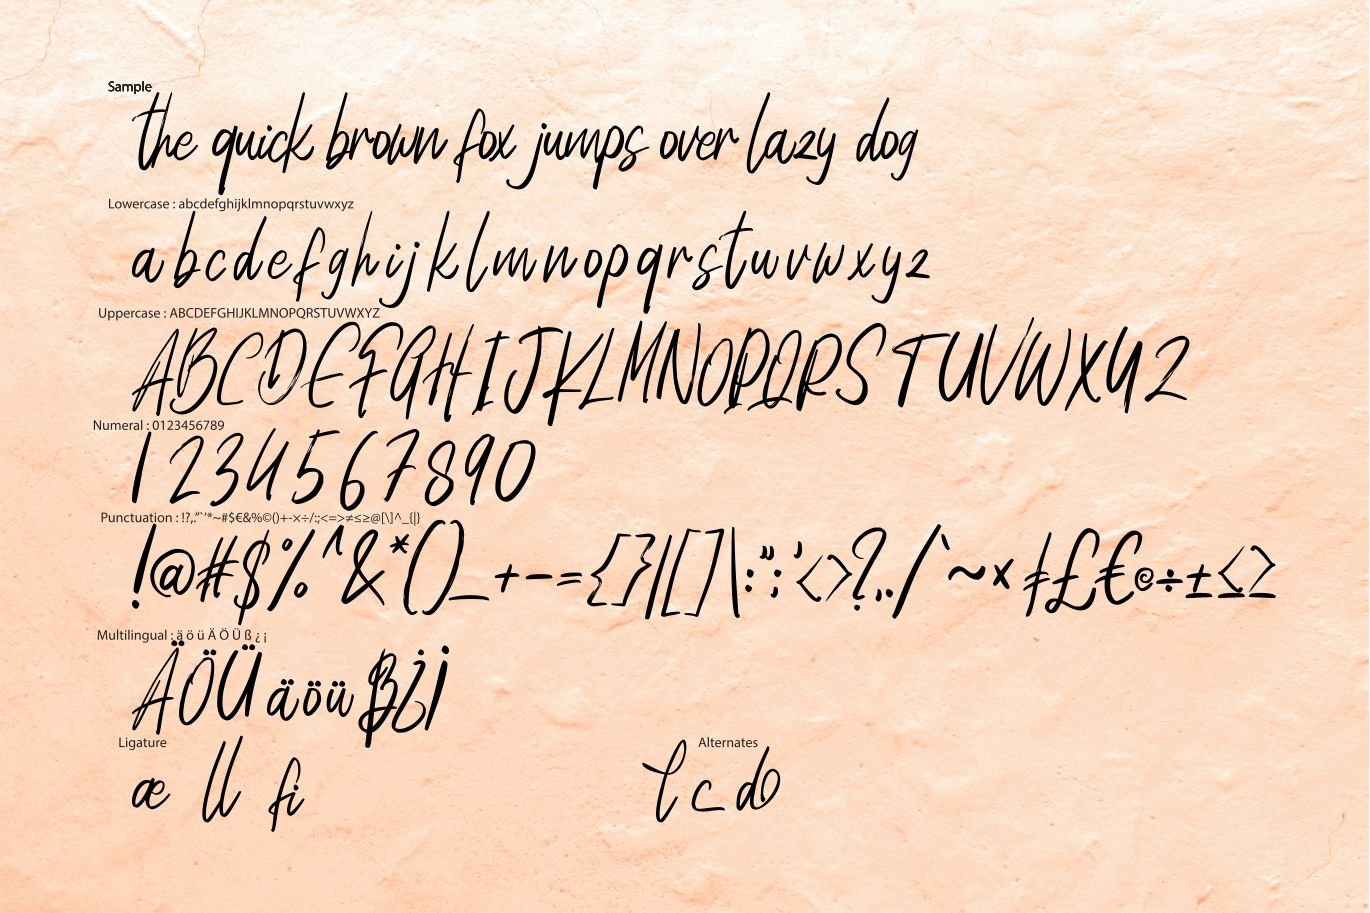 Sample
the quick brown fox jumps over lazy dog
Lowercase : abcdefghijklmnopqrstuvwxyz
a b c d e f g h i j k l m n o p q r s t u v w x y z
Uppercase : ABCDEFGHIJKLMNOPQRSTUVWXYZ
A B C D E F G H I J K L M N O P Q R S T U V W X Y Z
Numeral : 0123456789
1 2 3 4 5 6 7 8 9 0
Punctuation : !?,.”“’*~#$€&%©()+-×÷/:;<=>≠≤≥@[\]^_{|}
!@#$%^&*()_+-={}|[]\:";'<>?,./`~×≠£€©÷±≤≥
Multilingual : ä ö ü Ä Ö Ü ß ¿ ¡
ÄÖÜ äöü ß¿¡
Ligature Alternates
æ ll fi l c d